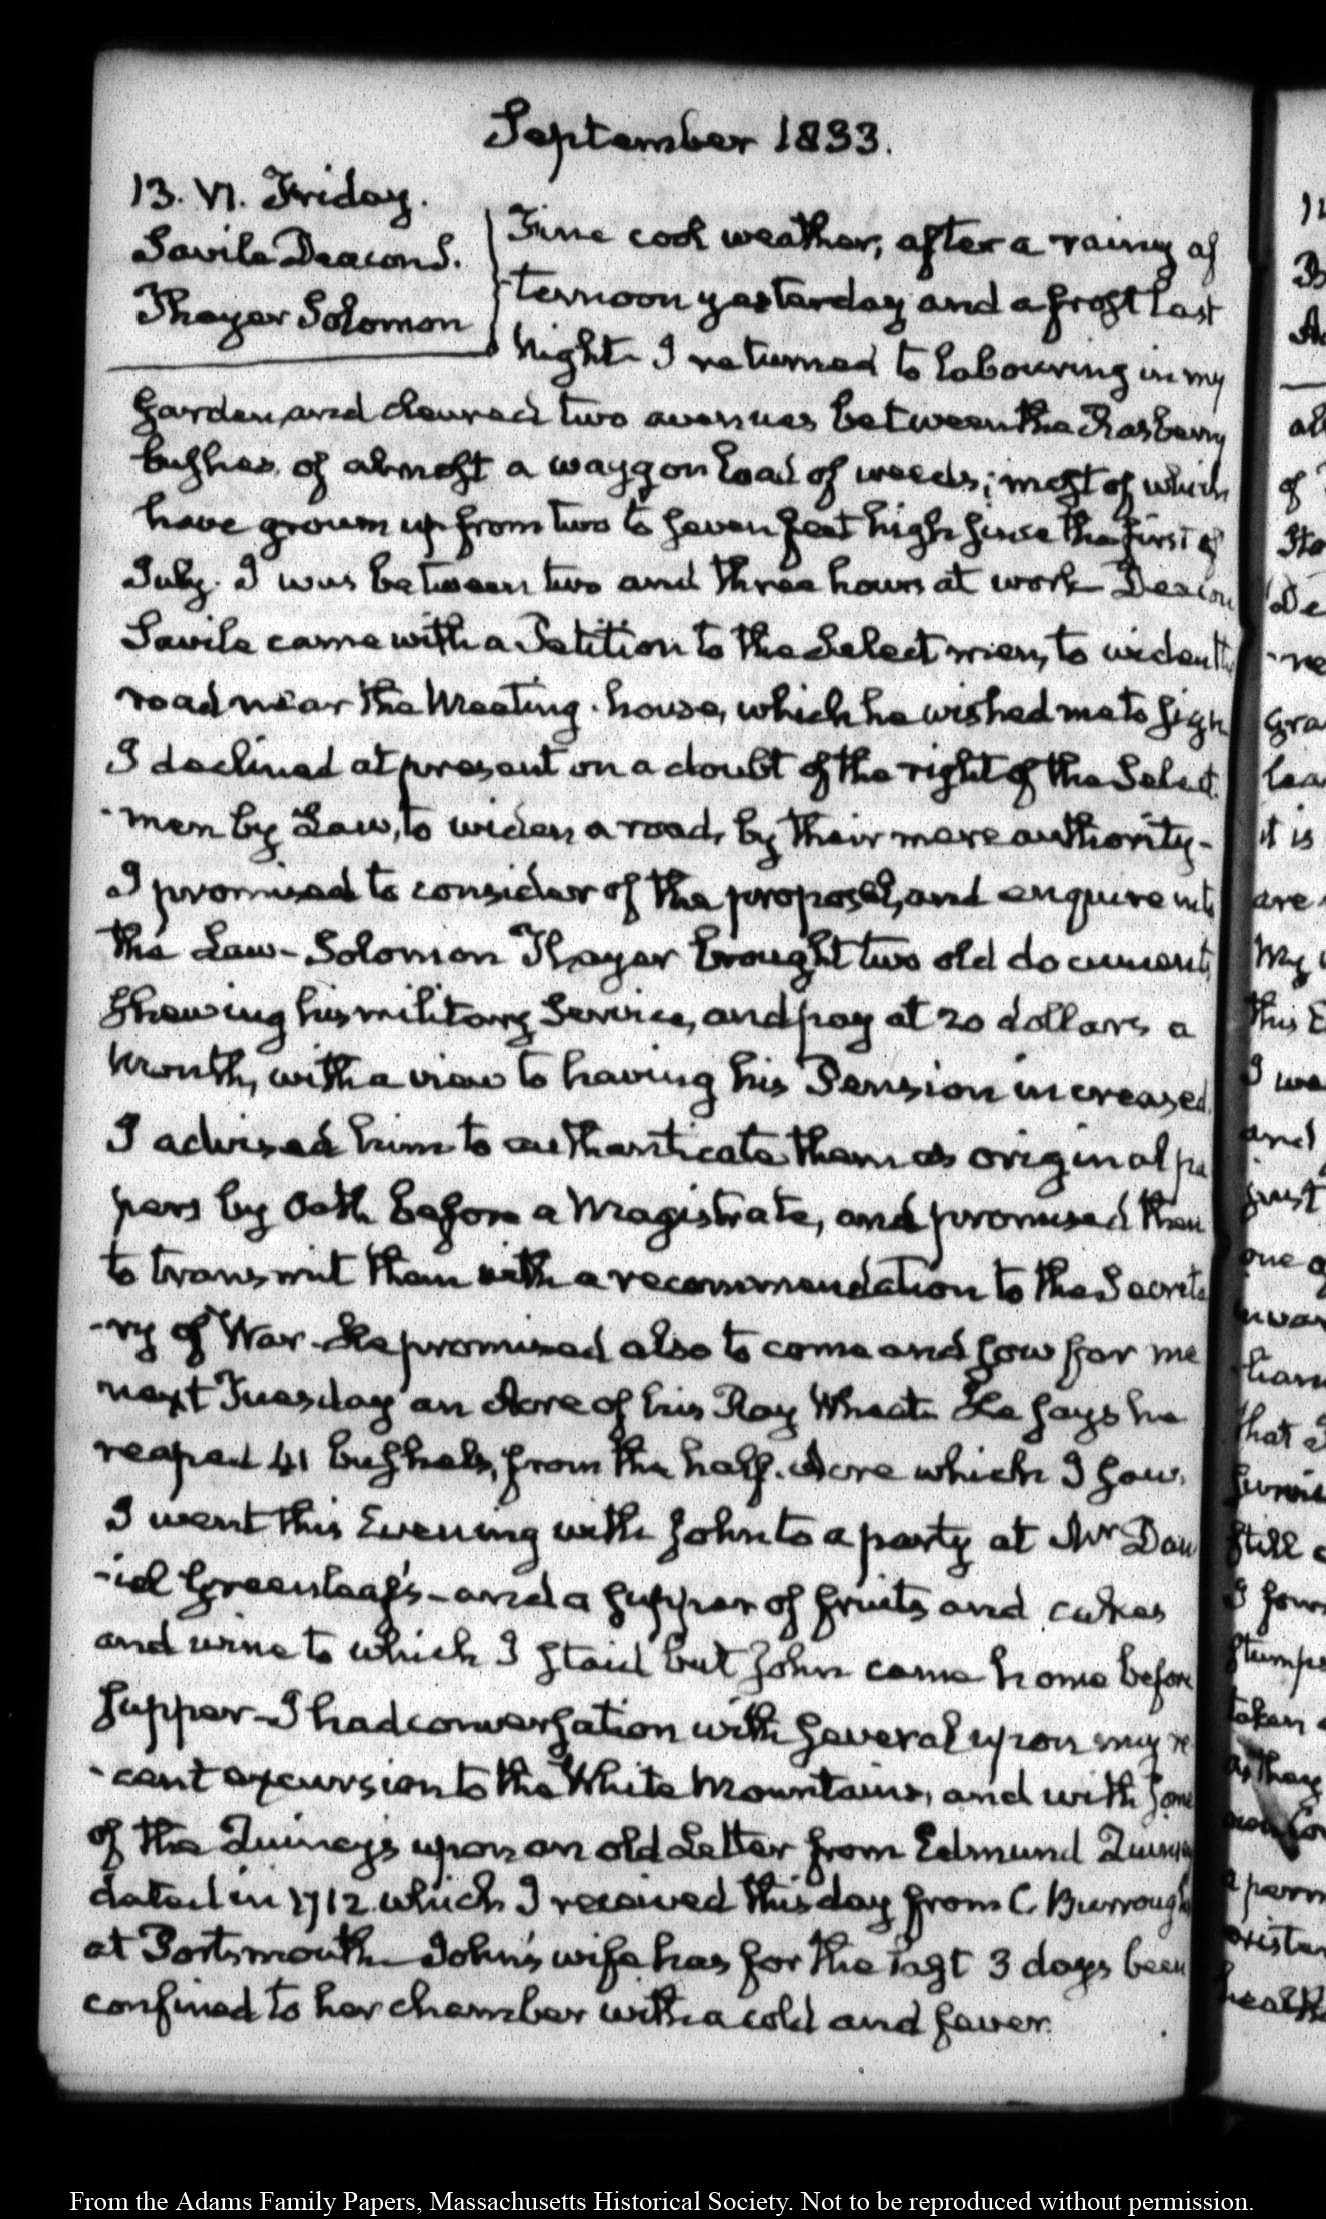 September 1833.
13. VI. Friday.
Savila Deacon S.
Thayer Solomon
Fine cool weather, after a rainy af
ternoon yesterday and a frost last
Night. I returned to labouring in my
Garden, and cleared two avenues between the Rasberry
bushes of almost a waggon load of weeds; most of which
have grown up from two to seven feet high since the first of
July. I was between two and three hours at work - Deacon
Savile came with a Petition to the Select men, to widen the
road near the Meeting-house, which he wished me to sign
I declined at present on a doubt of the right of the Select
-men by Law, to widen a road, by their mere authority-
I promised to consider of the proposal, and enquire into
the Law - Solomon Thayer brought two old documents
shewing his military Service, and pay at 20 dollars a
Month, with a view to having his Pension increased.
I advised him to authenticate them as original pa
pers by Oath before a Magistrate, and promised then
to transmit them with a recommendation to the Secreta
-ry of War - He promised also to come and sow for me
next Tuesday an Acre of his Ray Wheat. He says he
reaped 41 bushels, from the half-Acre which I saw.
I went this Evening with John to a party at Mr Dan
-iel Greenleaf's - and a supper of fruits and cakes
and wine to which I staid but John came home before
supper - I had conversation with several upon my re
-cent excursion to the White Mountains, and with some
of the Quincy's upon an old Letter from Edmund Quincy
dated in 1712 which I received this day from C. Burroughs
at Portsmouth - John's wife has for the last 3 days been
confined to her chamber with a cold and fever.
all
of
it is
are
My
this
I
and
just
one
that
still
I
taken
as they
a
From the Adams Family Papers, Massachusetts Historical Society. Not to be reproduced without permission.